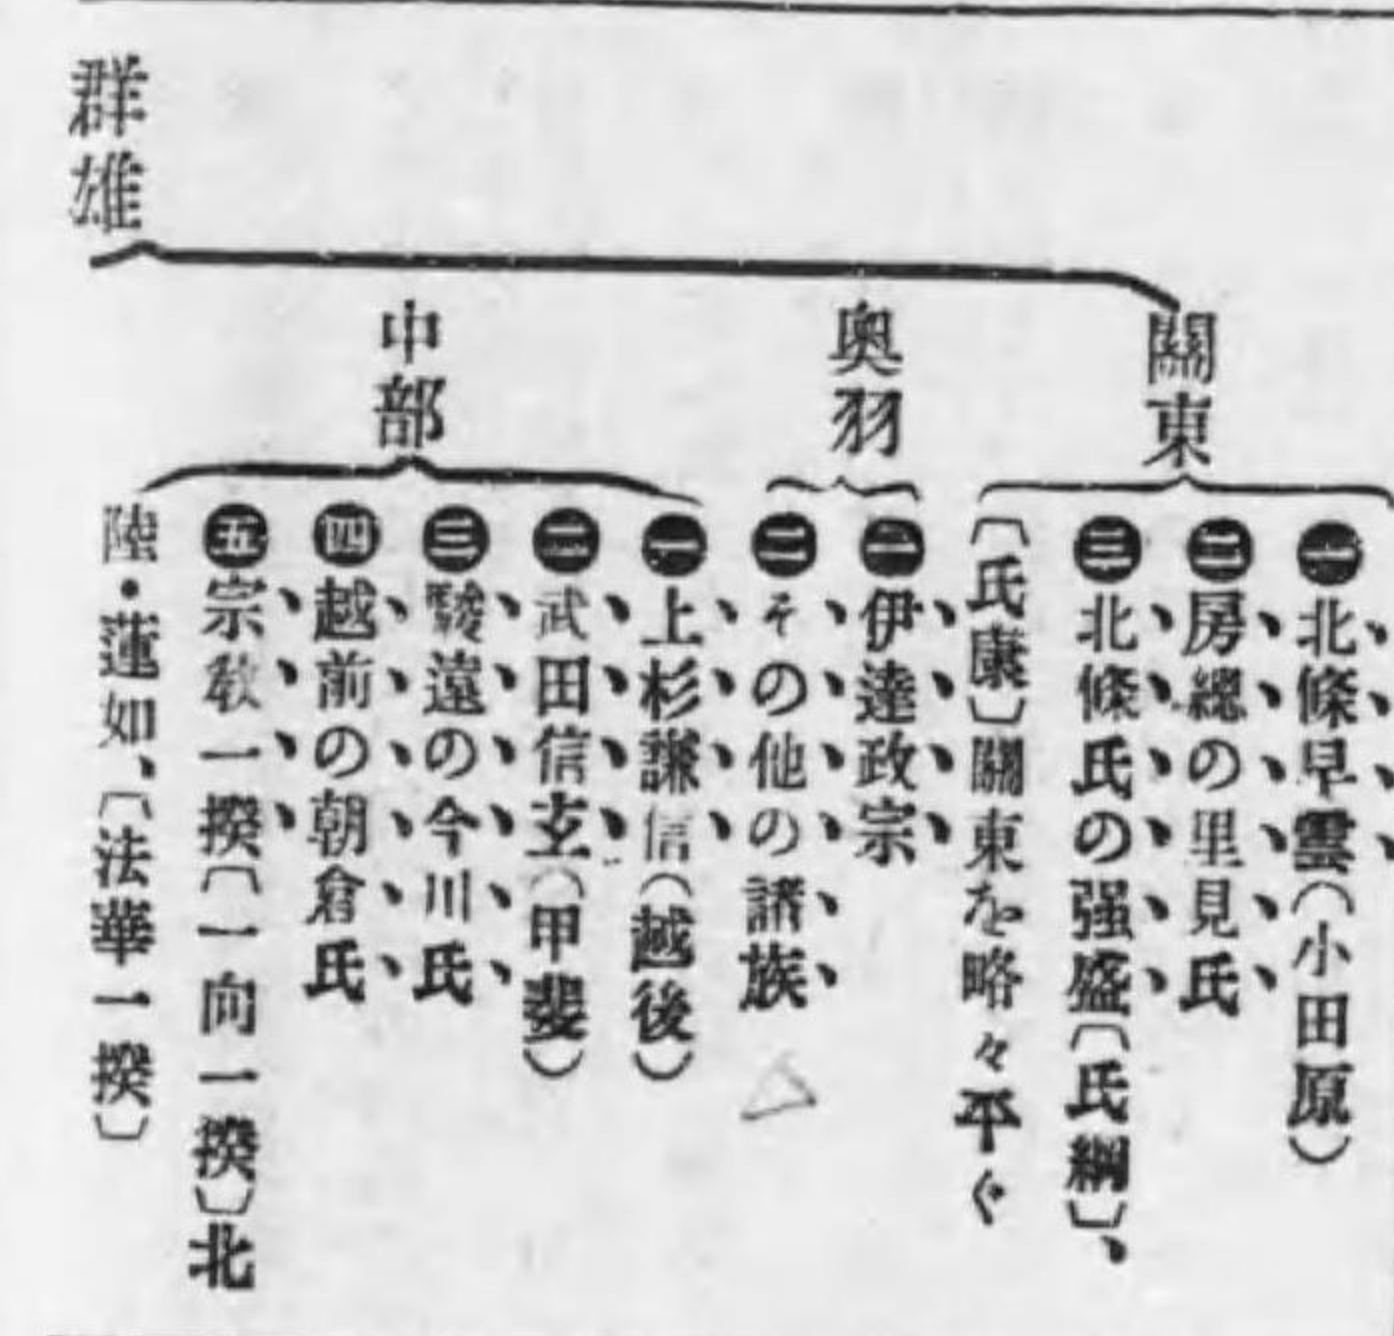 群雄
關東
㊀北條早雲(小田原)
㊁房總の里見氏
㊂北條氏の强盛〔氏綱〕、
〔氏康〕關東を略々平ぐ
奧羽
㊀伊達政宗
㊁その他の諸族
中部
㊀上杉謙信(越後)
㊁武田信玄(甲斐)
㊂駿遠の今川氏
㊃越前の朝倉氏
㊄宗敎一揆〔一向一揆〕北
陸・蓮如、〔法華一揆〕